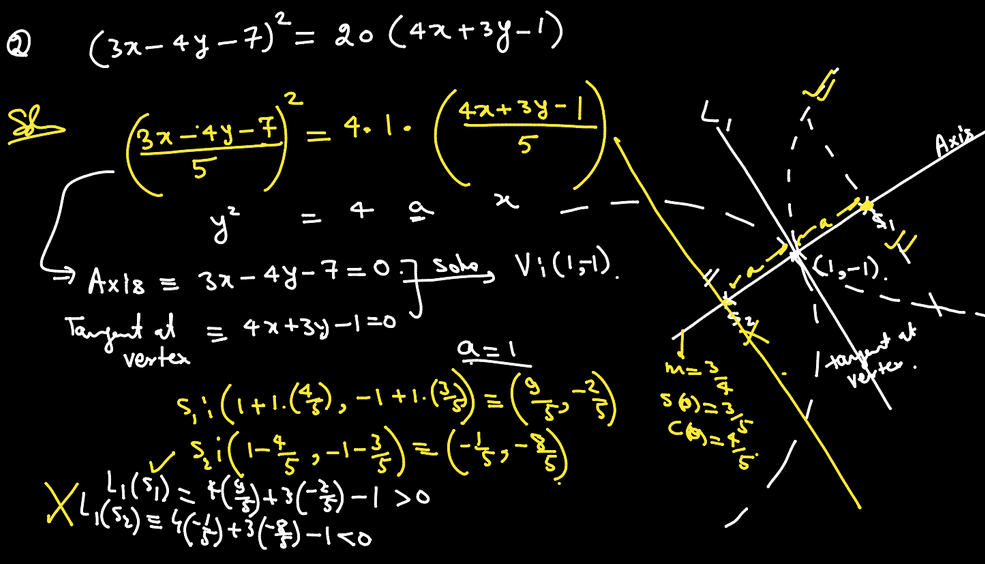 ② (3x-4y-7)² = 20 (4x+3y-1)
Sol
((3x-4y-7)/5)² = 4.1.((4x+3y-1)/5)
y² = 4 a x
Axis ≡ 3x-4y-7=0. Solve V:(1,-1).
Tangent at vertex ≡ 4x+3y-1=0
a=1
S₁: (1+1.(4/5), -1+1.(3/5)) ≡ (9/5, -2/5)
S₂: (1-4/5, -1-3/5) = (-1/5, -8/5)
L₁(S₁) = 4(9/5)+3(-2/5)-1 >0
L₁(S₂) ≡ 4(-1/5)+3(-8/5)-1<0
L₁
Axis
a
S₁
a
(1,-1).
S₂
m=3/4
S(θ)=3/5
C(θ)=4/5.
tangent at
vertex.